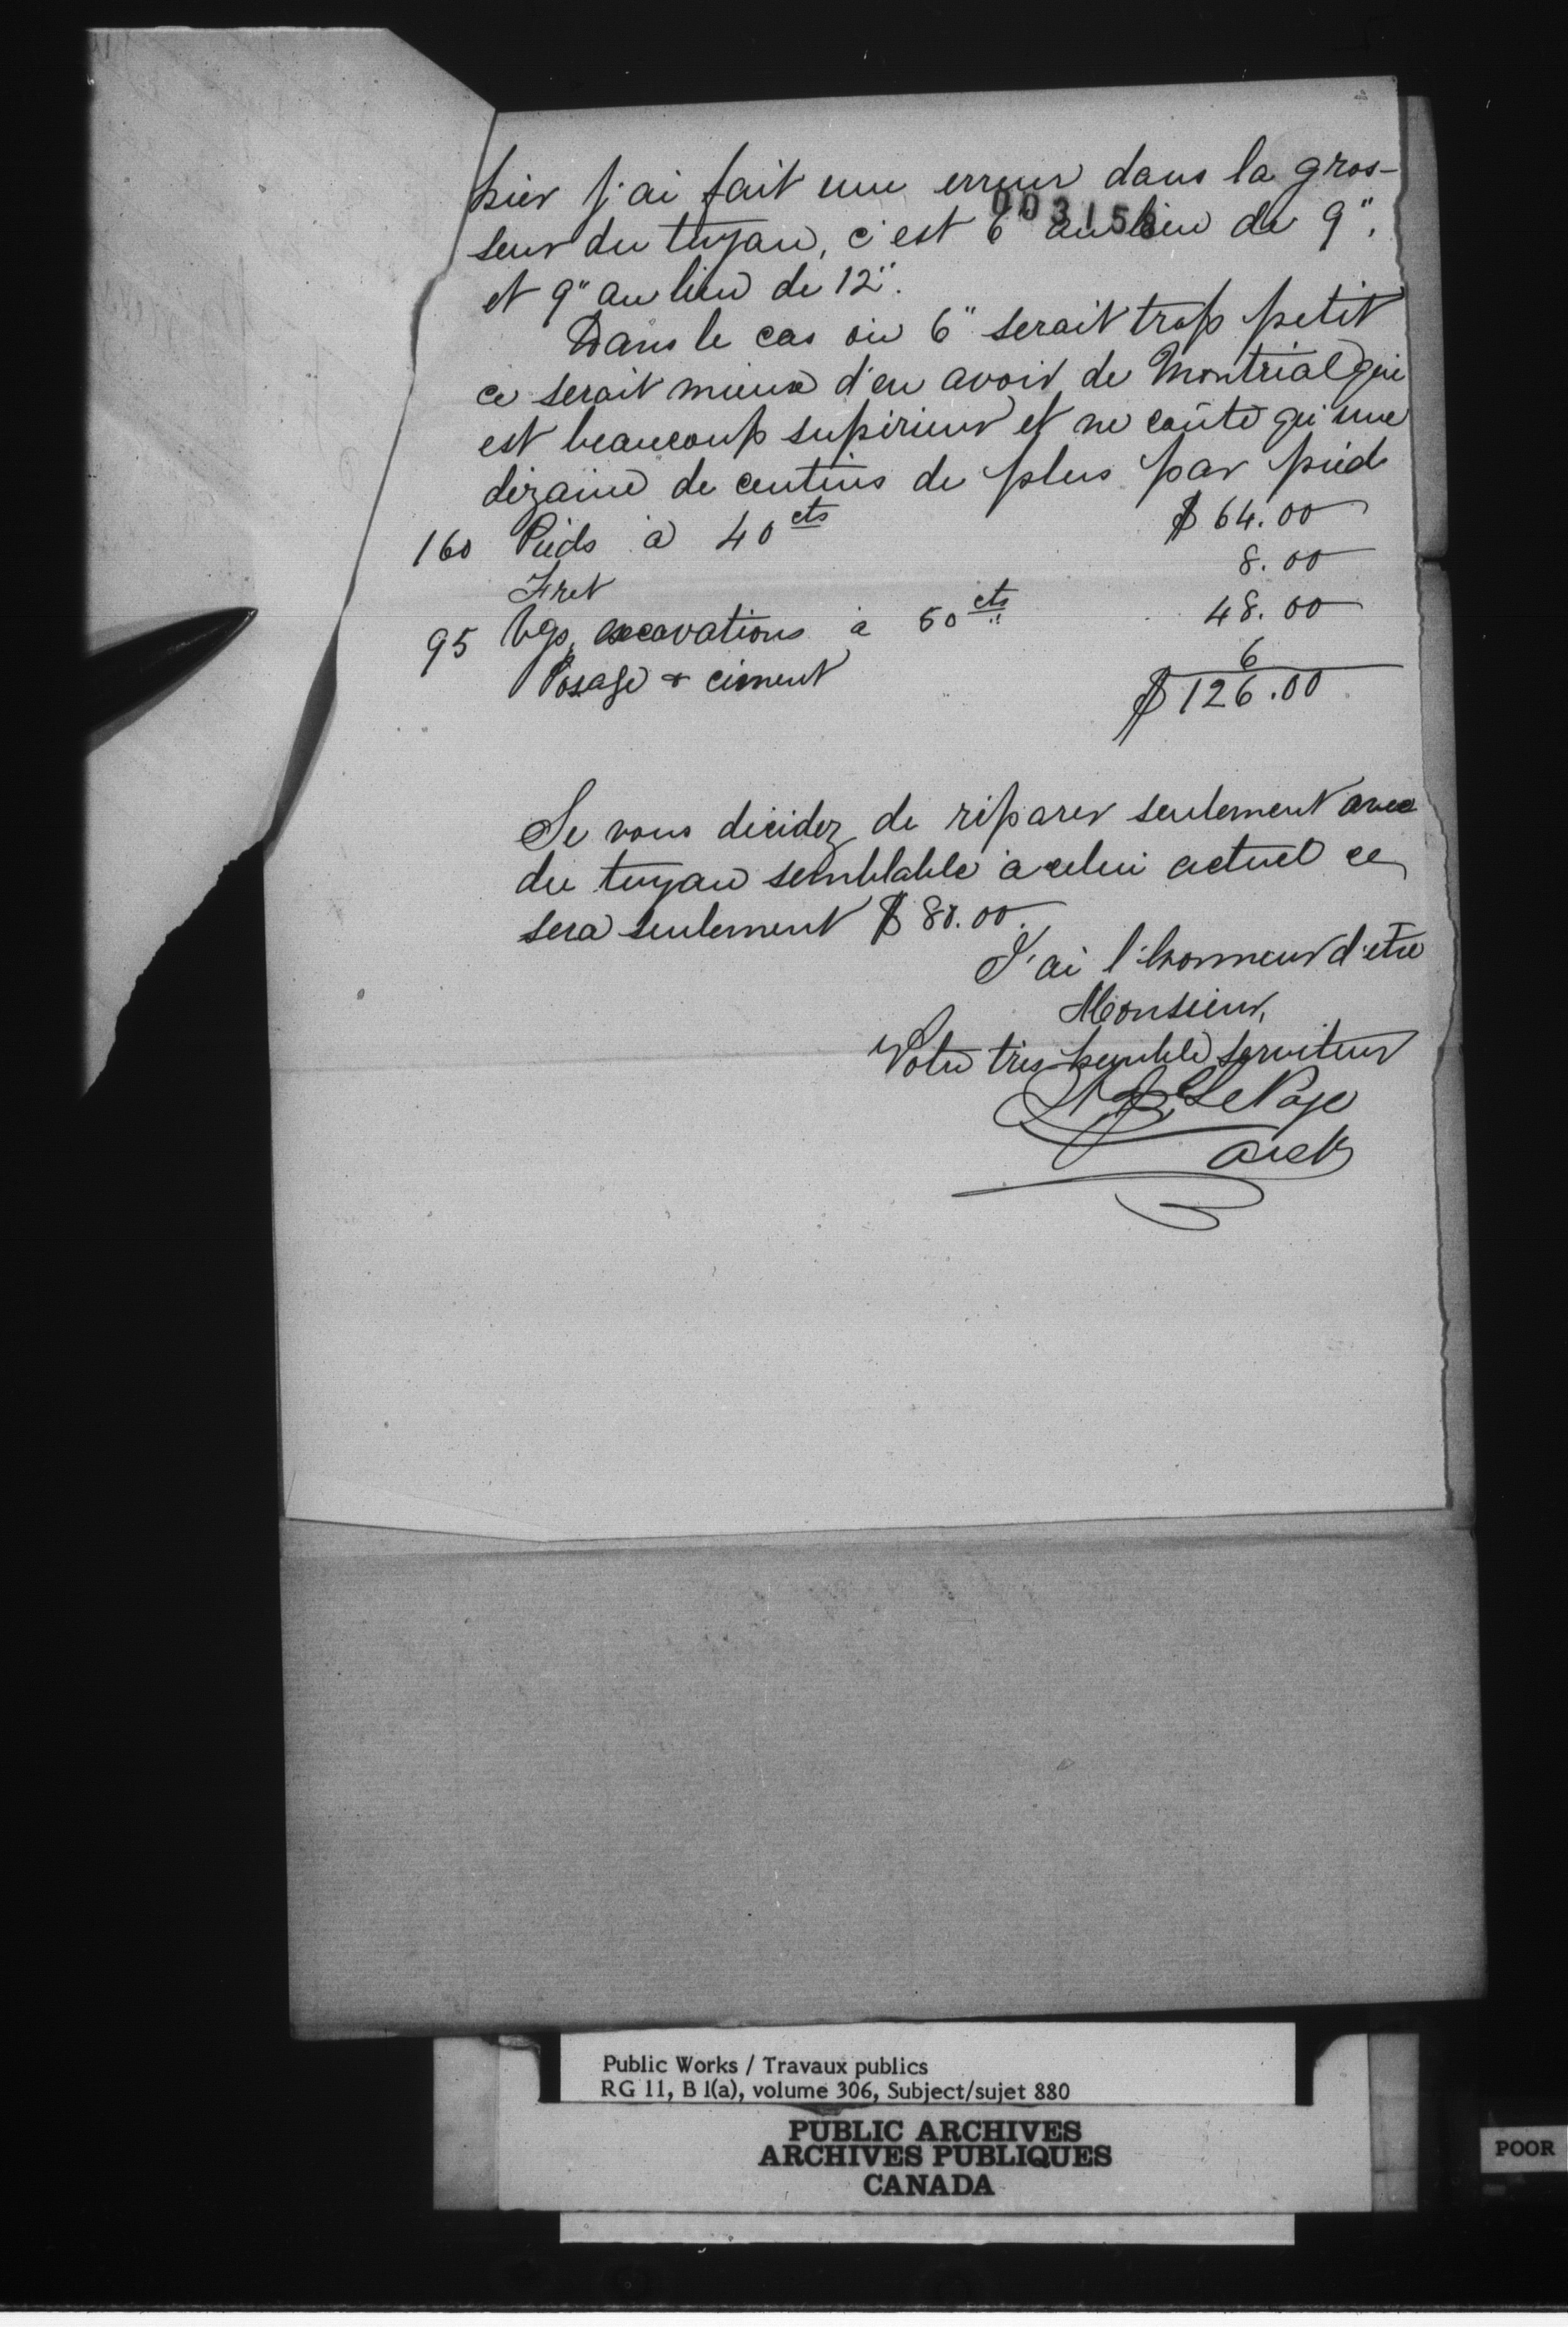 hier j'ai fait une erreur dans la gros-
003155
seur du tuyau, c'est 6" au lieu de 9".
et 9" au lieu de 12".
Dans le cas où 6" serait trop petit
ce serait mieux d'en avoir de Montréal qui
est beaucoup supérieur et ne coûte qu'une
dizaine de centins de plus par pied
160 Pieds à 40 cts $ 64.00
Fret 8.00
95 Vgs, excavations à 50 cts 48.00
Posage & ciment 6
$ 126.00
Si vous décidez de réparer seulement avec
du tuyau semblable à celui actuel ce
sera seulement $ 80.00.
J'ai l'honneur d'être
Monsieur,
Votre très humble serviteur
LePage
Arch
Public Works / Travaux publics
RG 11, B 1(a), volume 306, Subject/sujet 880
PUBLIC ARCHIVES
ARCHIVES PUBLIQUES
CANADA
POOR